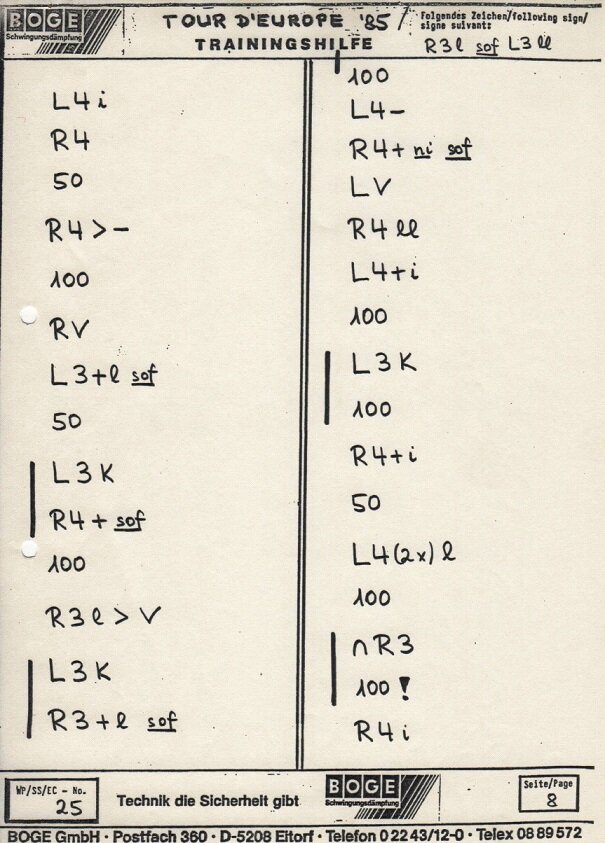 BOGE
Schwingungsdämpfung
TOUR D'EUROPE '85 /
TRAININGSHILFE
Folgendes Zeichen/following sign/
signe suivant:
R3l sof L3ll
L4i
R4
50
R4>-
100
RV
L3+l sof
50
L3K
R4+ sof
100
R3l>V
L3K
R3+l sof
100
L4-
R4+ ni sof
LV
R4ll
L4+i
100
L3K
100
R4+i
50
L4(2x)l
100
∩R3
100!
R4i
WP/SS/EC - No.
25
Technik die Sicherheit gibt
BOGE
Schwingungsdämpfung
Seite/Page
8
BOGE GmbH · Postfach 360 · D-5208 Eitorf · Telefon 0 22 43/12-0 · Telex 08 89 572